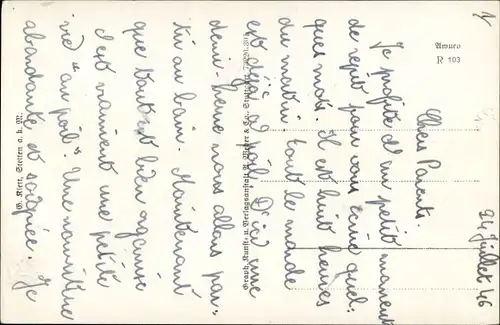 24 Juillet 46
Chers Parents.
Je profite d'un petit moment
de répit pour vous écrire quel-
ques mots. Il est huit heures
du matin tout le monde
est déjà à poil. D'ici une
demi-heure nous allons par-
tir au bain. Maintenant
que tout est bien organisé
c'est vraiment une petite
vie "au poil". Une nourriture
abondante et soignée. Je
Amuco
R 103
Graph. Kunst- u. Verlagsanstalt A. Weber & Co., Stuttgart
G. Klett, Stetten a. k. M.